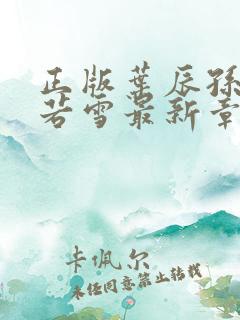 正版叶辰孙
若雪最新章
卡佩尔
未经同意禁止转载